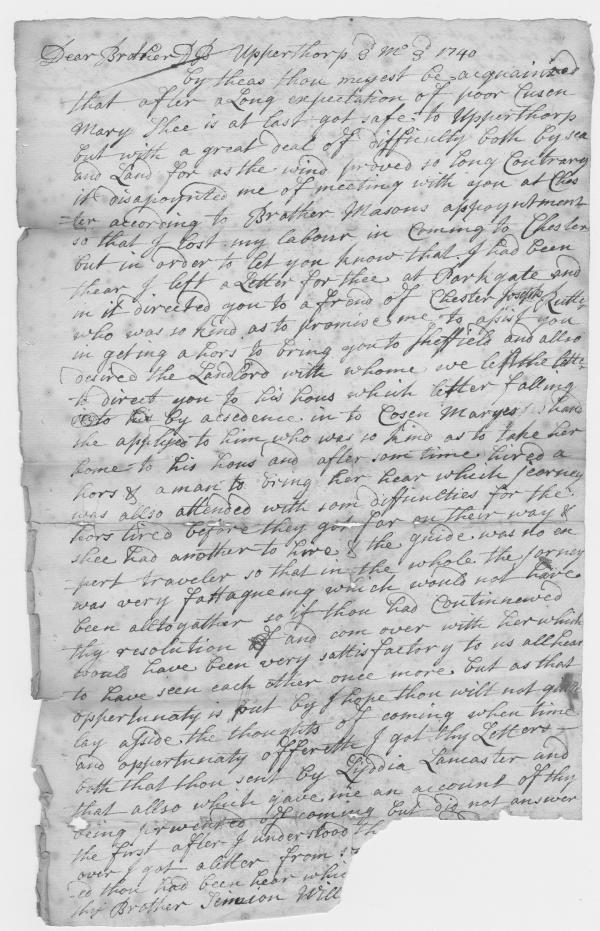 Dear Brother Upperthorp 3d Mo 3d 1740
by theas thou mayest be acquainted
that after a Long expectation of poor Cusen
Mary Shee is at last got safe to Upperthorp
but with a great deal of difficulty both by sea
and Land for as the wind proved so long Contrary
it disapoynted me of meeting with you at Ches
=ter according to Brother Masons appoyntment
so that I lost my labour in Coming to Chester
but in order to let you know that I had been
thear I left a Letter for thee at Parkgate and
in it directed you to a frend of Chester Joseph
who was so kind as to promise me to assist you
in geting a hors to bring you to Sheffield and also
desired the Landlord with whome we left the lette
to direct you to his hous which letter falling
by acsedence in to Cosen Maryes hand
she applyed to him who was so kind as to take her
home to his hous and after som time hired a
hors & a man to bring her hear which jeorney
was allso attended with som difficulties for the
hors tired before they gott far on their way &
shee had another to hire & the guide was no ex
=pert traveler so that in the whole the jorney
was very fattagueing which would not have
been alltogather so if thou had Continnewed
thy resolution and com over with her which
would have been very sattisfactory to us all hear
to have seen each other once more but as that
oppertunaty is put by I hope thou wilt not quite
lay asside the thoughts of coming when time
and oppertunaty offereth I got thy Letters
both that thou sent by Lyddia Lancaster and
that allso which gave me an account of thy
being prevented of coming but did not answer
the first after I understood th
over I got a letter from
=ed thou had been hear whic
thy Brother Simeon Will